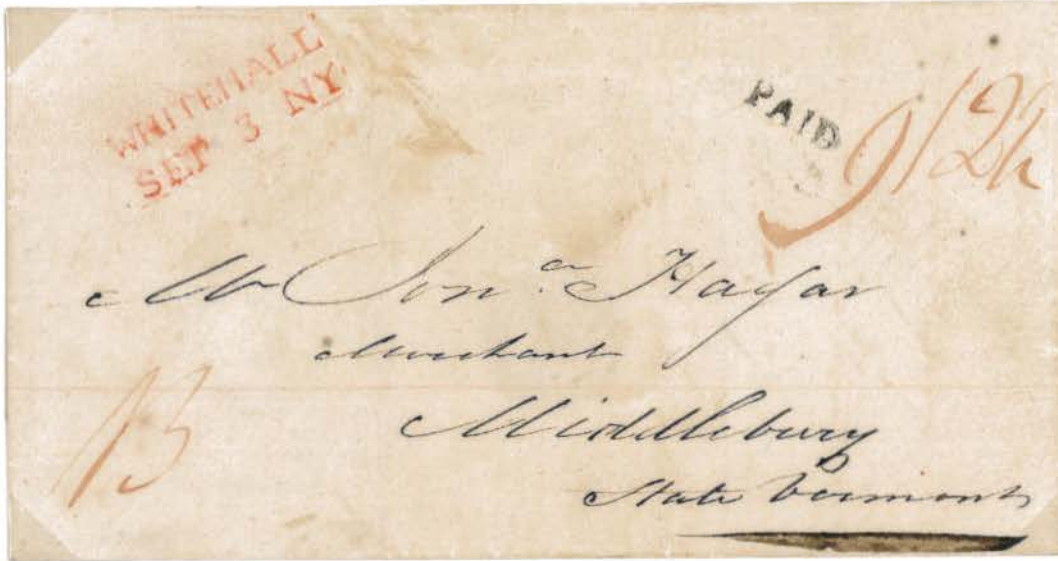 WHITEHALL
SEP 3 NY
PAID
Mr Jon.a Hagar
Merchant
Middlebury
State Vermont